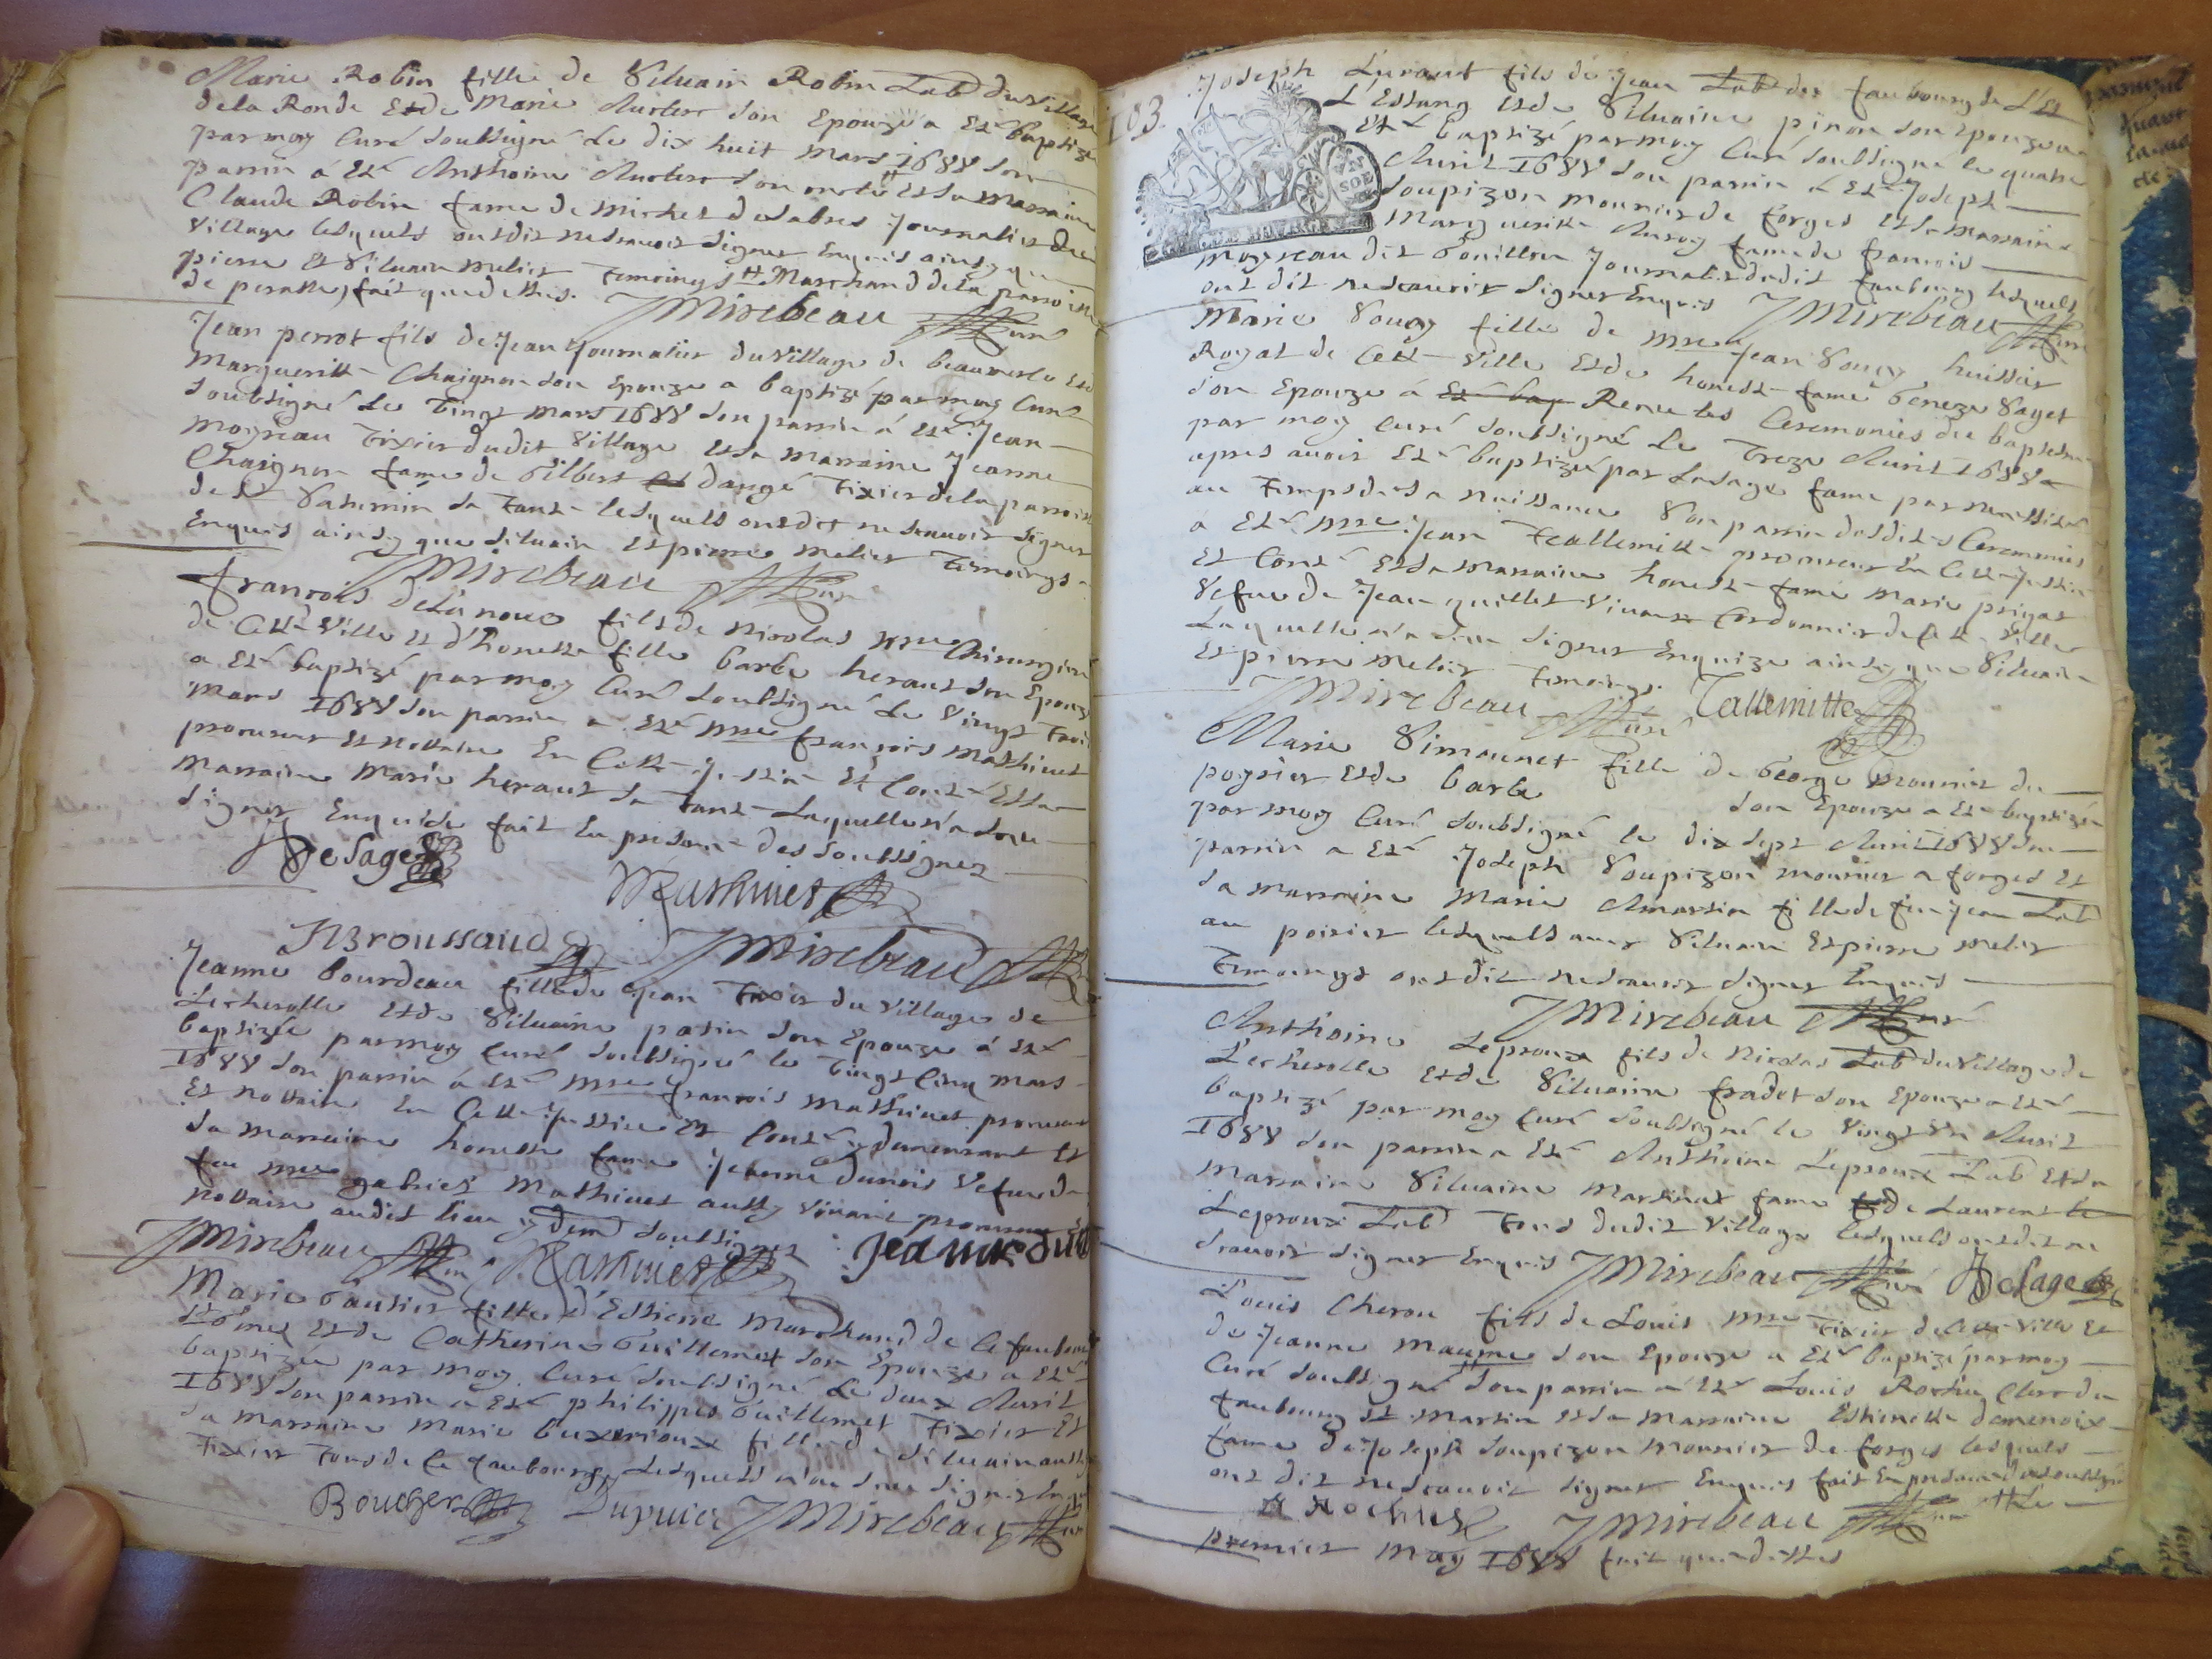 Marie Robin fille de Silvain Robin Lab du village
dela Ronde Et de Marie Auclerc son Epouze a Esté baptizé
par moy Curé soubsigné Le dix huit Mars 1688 son
parrin á Esté Anthoine Auclerc son oncle Et sa Marraine
Claude Robin fame de Michel desabres Journalier du
village lesquels ont dit ne scauoir signer Enquis ainsy que
pierre Et Siluain Melier Temoings Marchand dela parroisse
de perassay fait que dessus. JMirebeau Curé
Jean perrot fils de Jean Journalier du Village de beaumerle Et de
Margueritte Chaignon son Epouze a baptizé par moy Curé
soubsigné Le Vingt Mars 1688 son parrin á Esté Jean
Moyreau Tixier dudit Village Et sa Marraine Jeanne
Chaignon fame de Gilbert dangé Tixier de la parroisse
de St Saturnin sa Tante lesquels ont dit ne scauoir signer
Enquis ainsy que Siluain Et pierre Melier Temoings
JMirebeau Curé
francois Delánoue fils de Nicolas Mre Chirurgien
de Cette Ville Et d'honeste fille barbe heraut son Epouze
a Esté baptizé par moy Curé soubsigné Le Vingt Trois
Mars 1688 son parrin a Esté Mre francois Mathiuet
procureur Et Nottaire En Cette Justice Et Conté Et sa
Marraine Marie heraut sa Tante Laquelle n'a sceu
signer Enquise fait En presence des soussignez
DeSage
Mathiuet
Broussaud JMirebeau Curé
Jeanne bourdeau fille de Jean Tixier du Village de
Lecherolle Et de Siluaine patin son Epouze á Esté
baptizée par moy Curé soubsigné le Vingt Cinq Mars
1688 son parrin á Esté Mre francois Mathiuet procureur
Et Nottaire En Cette Justice Et Conté y demeurant Et
sa Marraine honeste fame Jeanne dunois Vefue de
feu Mre gabriel Mathiuet aussy Viuant procureur Et
Nottaire audit lieu y dem soussignez
JMirebeau Curé Mathiuet Jeanne du
Marie Gautier fille d'Estienne Marchand de Ce faubourg
Et de Catherine Guillemet son Epouze a Esté
baptizée par moy Curé soubsigné Le deux Auril
1688 son parrin a Esté philippes Guillemet Tixier Et
sa Marraine Marie buxerioux fille de Siluain aussy
Tixier Tous de Ce faubourg Lesquels n'ont sceu signer Enquis
Boucher Dupuiez JMirebeau Curé
103
Joseph Luraut fils de Jean Lab des faubourg de L'Et
L'Estang Et de Siluaine pinon son Epouze a
Esté baptizé par moy Curé soubsigné le quatre
Auril 1688 son parrin a Esté Joseph
soupizon mounier de forges Et sa Marraine
Margueritte Auroy fame de francois
Moyreau dit Gouillon Journalier dudit faubourg lesquels
ont dit ne scauoir signer Enquis JMirebeau Curé
Marie Sougy fille de Mre Jean Sougy huissier
Royal de Cette Ville Et de honeste fame Geneze Saget
son Epouze á Esté bap Receu les Ceremonies du baptesme
par moy Curé soubsigné Le Treze Auril 1688
apres auoir Esté baptizée par La sage fame par necessité
au Temps de sa Naissance son parrin desdites Ceremonies
a Esté Mre Jean Tallemitte procureur En Cette Justice
Et Conté Et sa Marraine honeste fame Marie prigat
Vefue de Jean guillet Viuant Cordonnier de Cette Ville
Laquelle n'a sceu signer Enquize ainsy que Siluain
Et pierre Melier Temoings.
JMirebeau Curé Tallemitte
Marie Simounet fille de George Mounier du
poyrier Et de barbe son Epouze a Esté baptizée
par moy Curé soubsigné le dix sept Auril 1688 son
parrin a Esté Joseph Soupizon mounier a forges Et
sa Marraine Marie Amartin fille de feu Jean Lab
au poirier lesquels auec Siluain Et pierre Melier
Temoings ont dit ne scauoir signer Enquis
JMirebeau Curé
Anthoine Leproux fils de Nicolas Lab du Village de
L'echerolle Et de Siluaine fradet son Epouze a Esté
baptizé par moy Curé soubsigné le Vingt Vn Auril
1688 son parrin a Esté Anthoine Leproux Lab Et sa
Marraine Siluaine Martinat fame de Laurent
Leproux Lab Tous dudit Village lesquels ont dit ne
scauoir signer Enquis JMirebeau Curé DeSage
Louis Cheron fils de Louis Mre Tixier de Cette Ville Et
de Jeanne Maume son Epouze a Esté baptizé par moy
Curé soubsigné son parrin a Esté Louis Rochu Clerc du
faubourg St Martin Et sa Marraine Estiennette demenoix
fame de Joseph soupizon Mounier de forges lesquels
ont dit ne scauoir signer Enquis fait En presence des soussignés
Rochus JMirebeau Curé Le
premier May 1688 fait que dessus